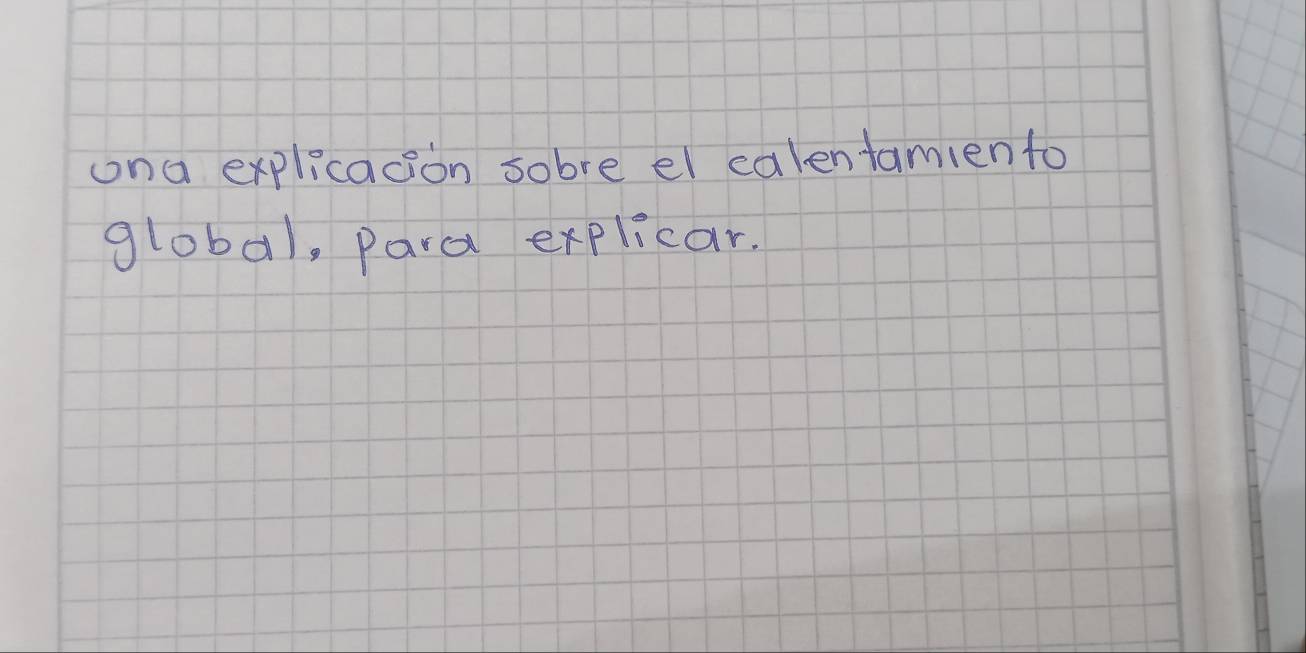 una explicación sobre el calentamiento
global, para explicar.